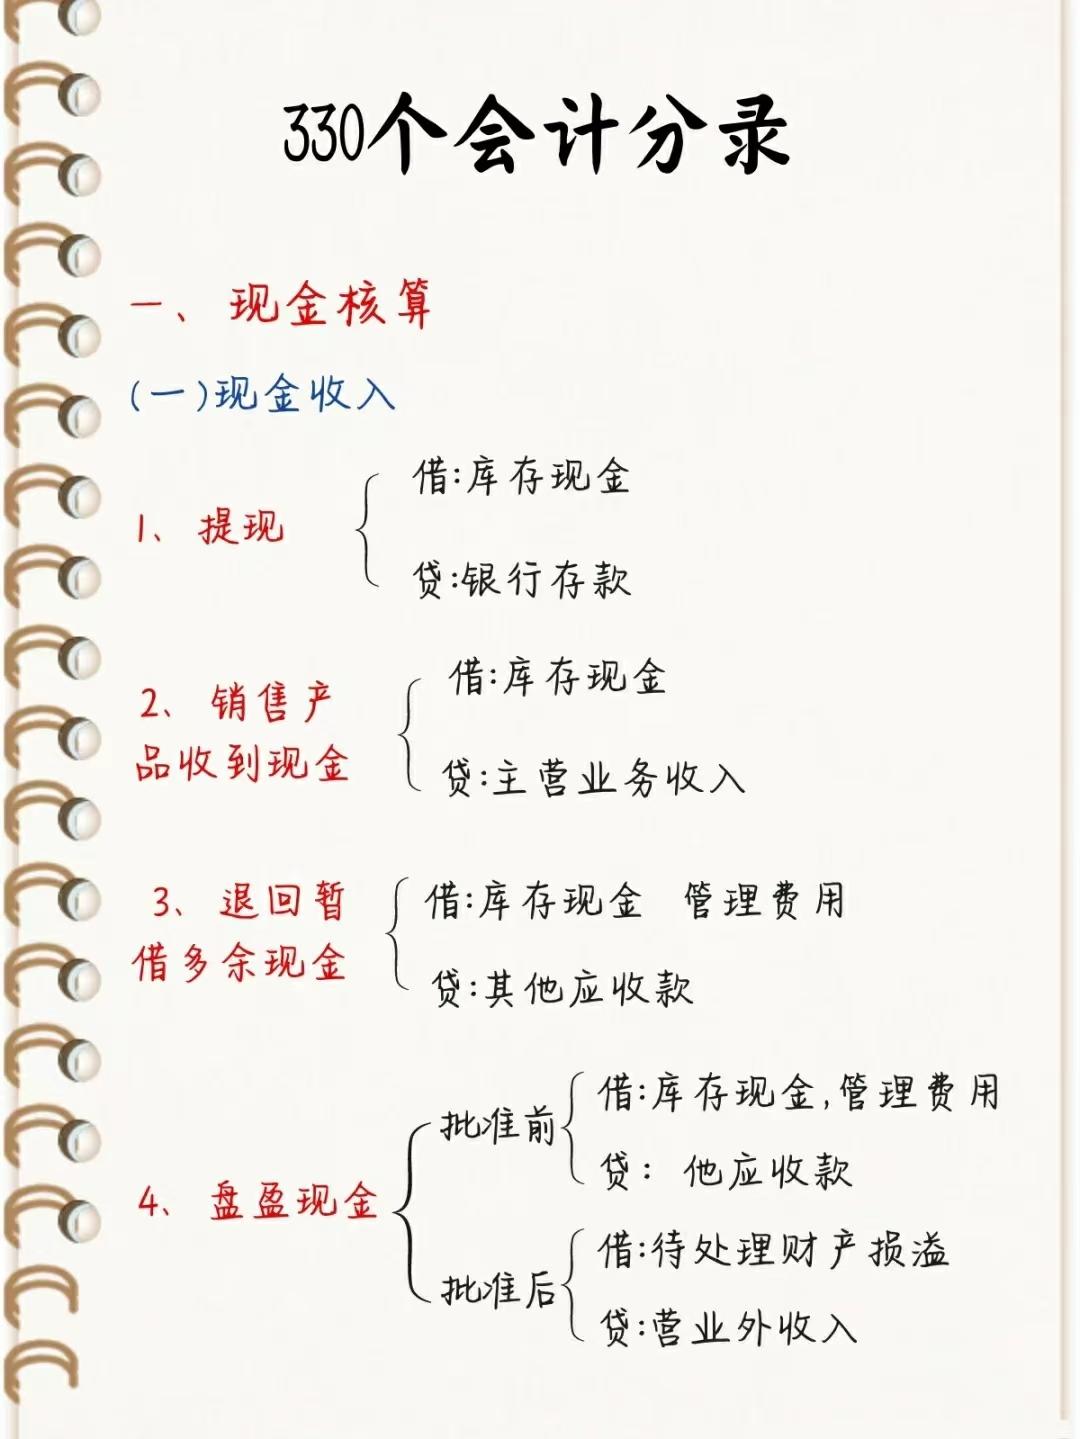 330个会计分录
一、现金核算
(一)现金收入
1、提现
借:库存现金
贷:银行存款
2、销售产
品收到现金
借:库存现金
贷:主营业务收入
3、退回暂
借多余现金
借:库存现金 管理费用
贷:其他应收款
4、盘盈现金
批准前
借:库存现金,管理费用
贷: 他应收款
批准后
借:待处理财产损溢
贷:营业外收入